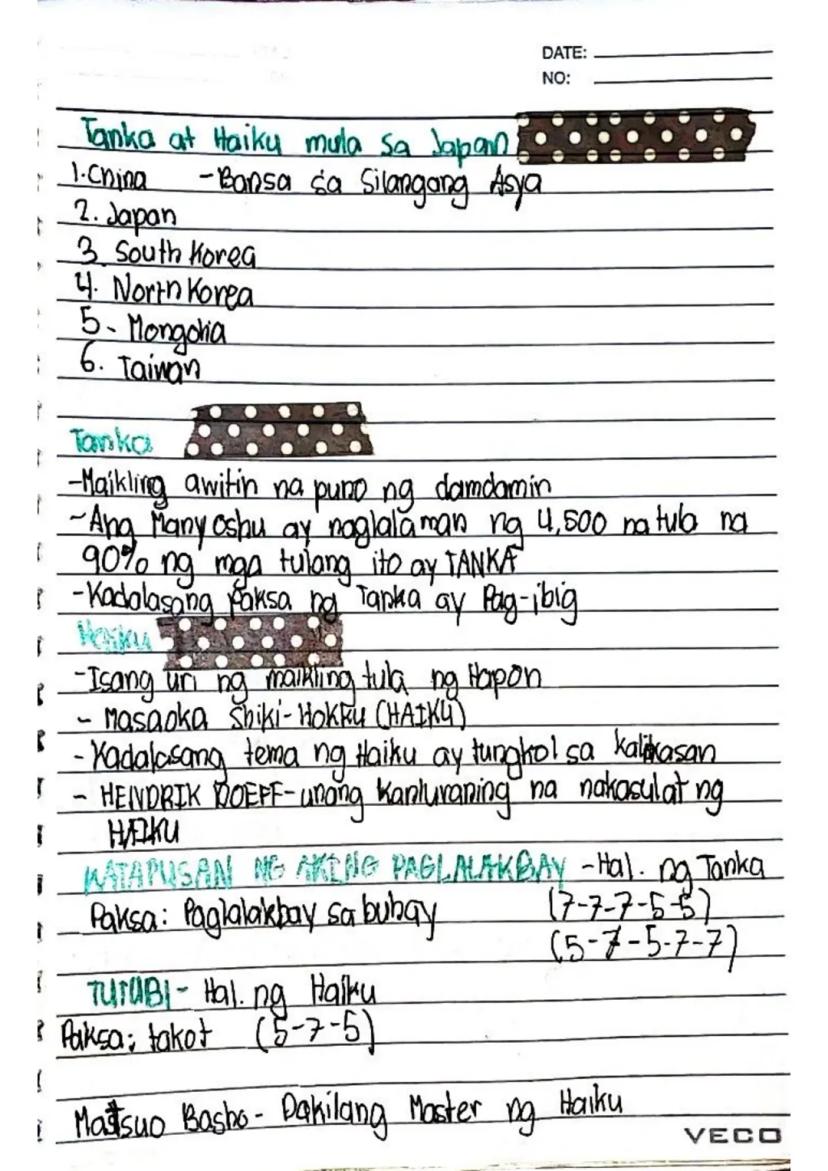 DATE:
NO:
Tanka at Haiku mula sa Japan
1. China - Bansa sa Silangang Asya
2. Japan
3 South Korea
4. North Korea
5- Mongolia
6. Taiwan
Tanka
-Maikling awitin na puno ng damdamin
-Ang Manyoshu ay naglalaman ng 4,500 na tula na
90% ng mga tulang ito ay TANKA
-Kadalasang Paksa ng Tanka ay Pag-ibig
Haiku
-Isang uri ng maikling tula ng Hapon
- Masaoka Shiki-Hokku (HAIKU)
- Kadalasang tema ng Haiku ay tungkol sa kalikasan
- HENDRIK DOEFF-unang kanluraning na nakasulat ng
HAIKU
KATAPUSAN NG AKING PAGLALAKBAY - Hal. ng Tanka
Paksa: Paglalakbay sa buhay (7-7-7-5-5)
(5-7-5-7-7)
TUTUBI - Hal. ng Haiku
Paksa: takot (5-7-5)
Matsuo Basho - Dakilang Master ng Haiku
VECO